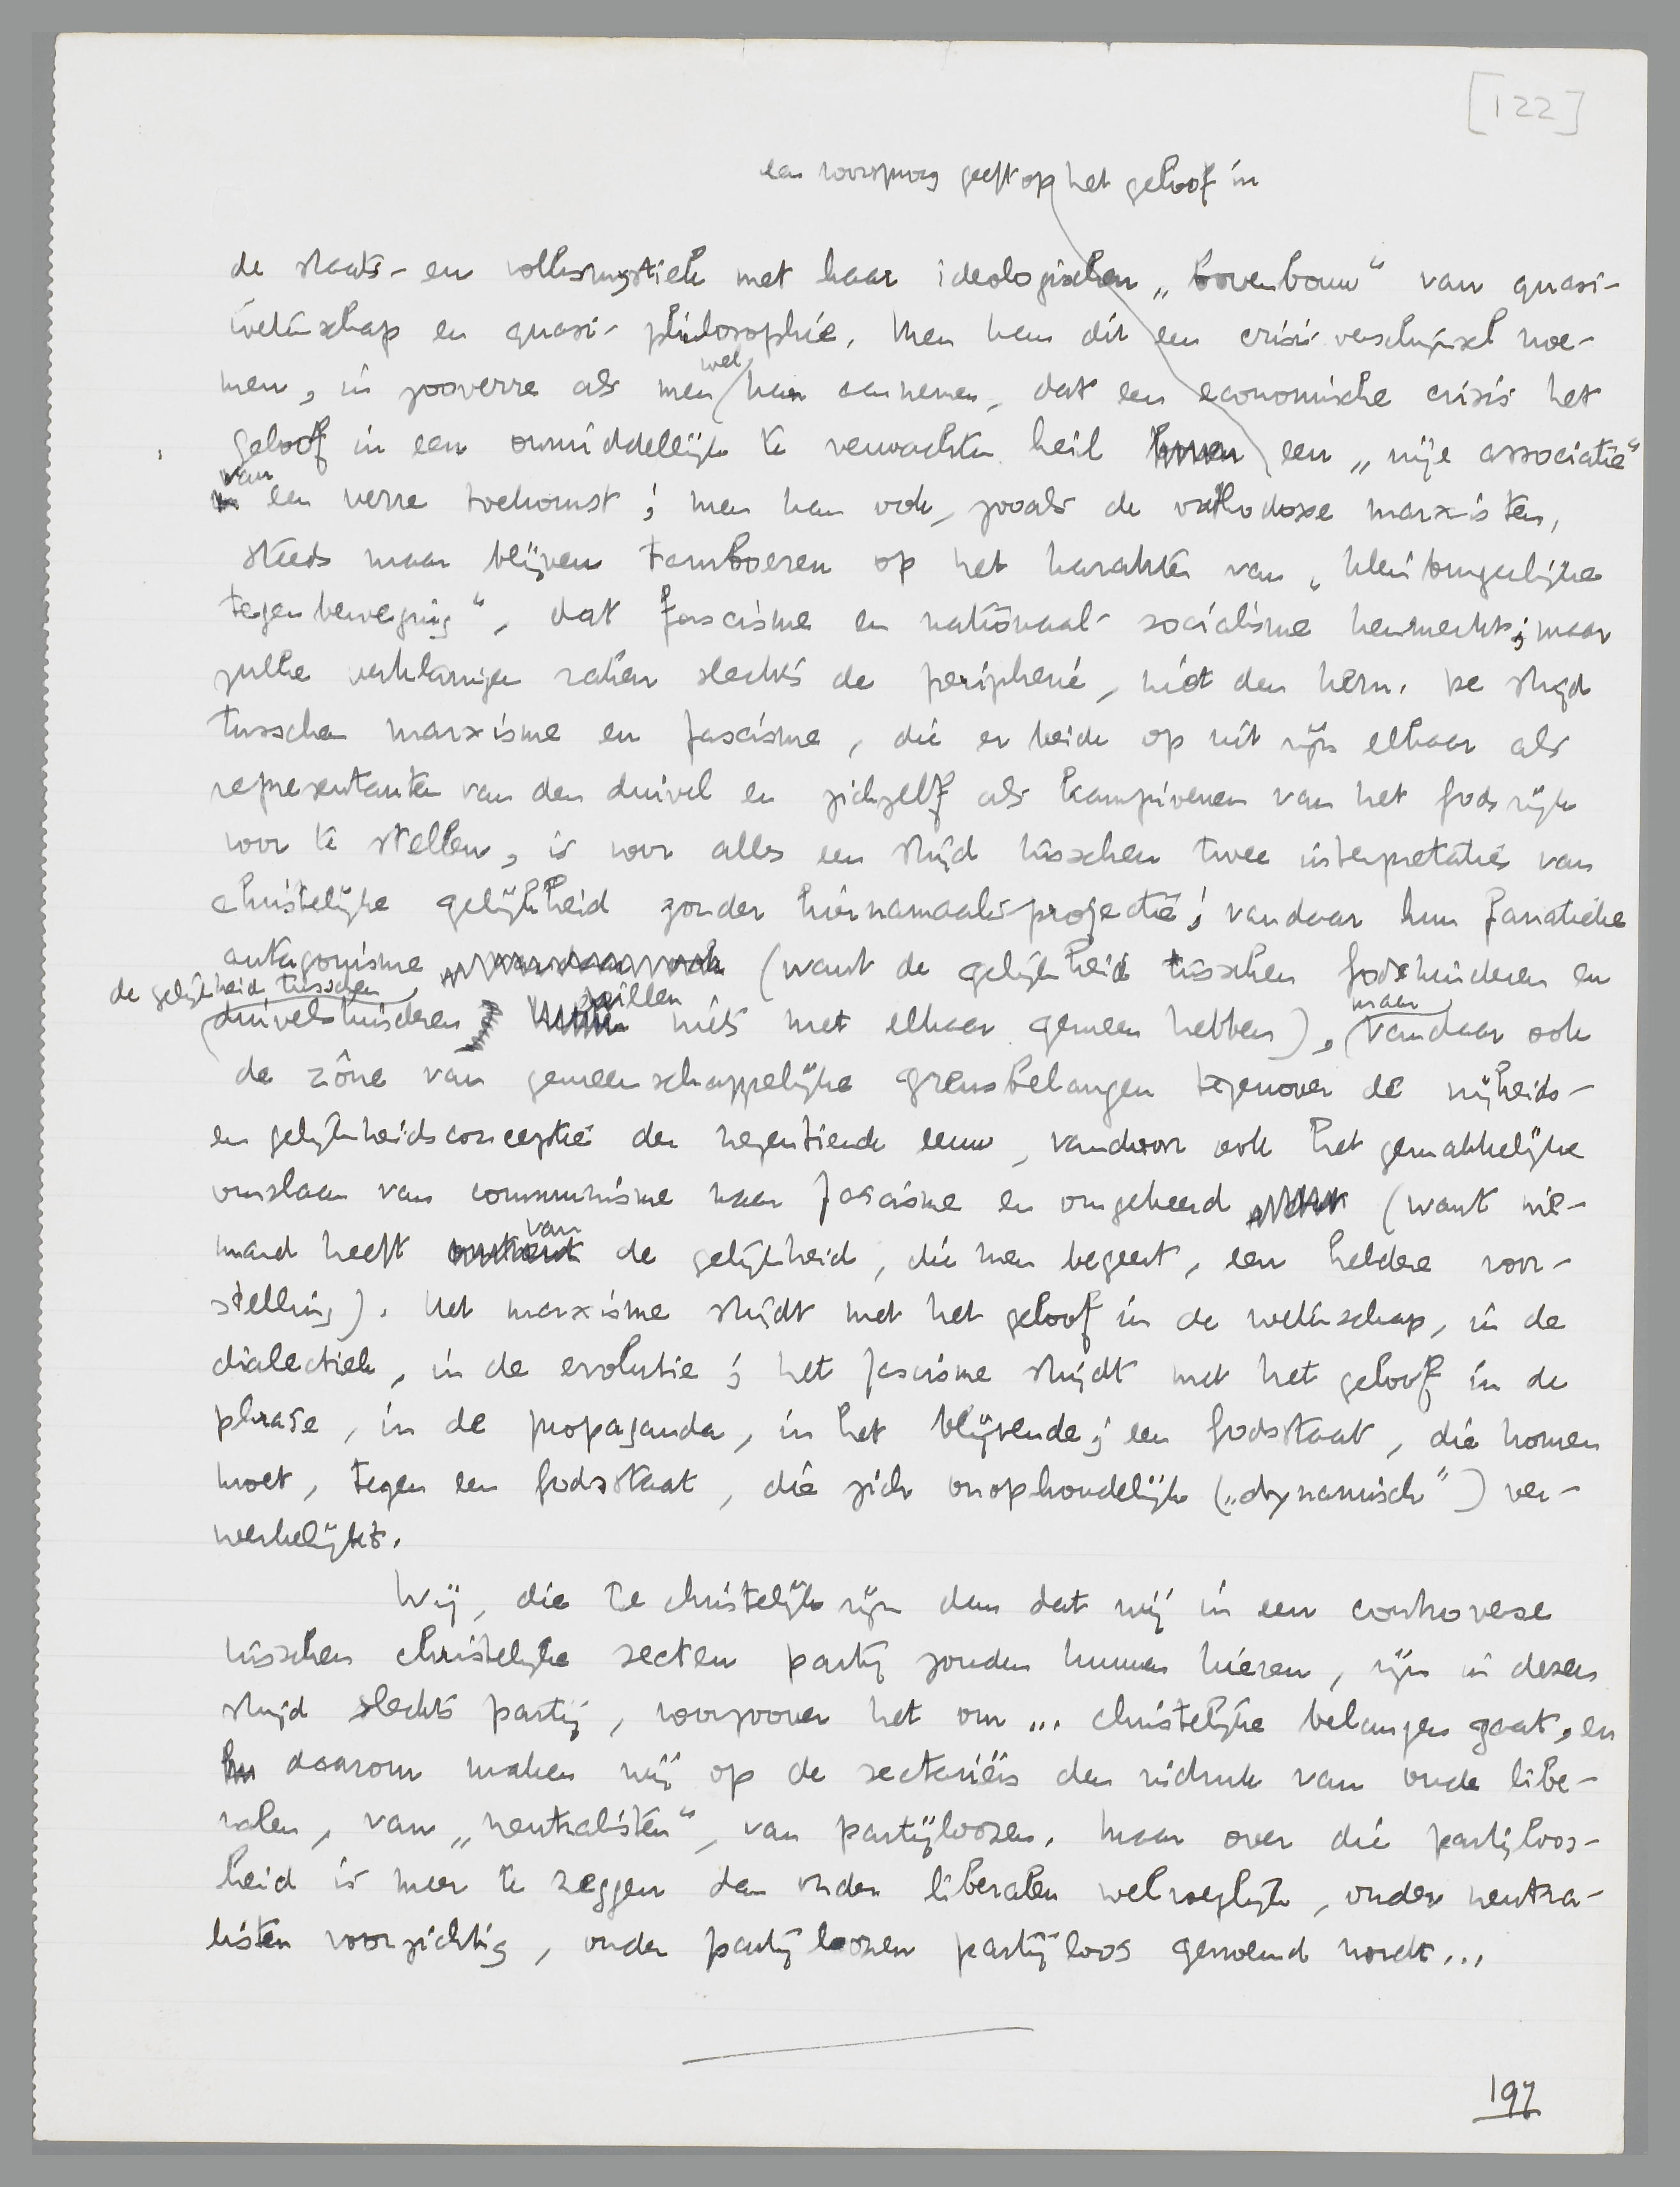 [122]
een voorsprong geeft op het geloof in
de staats- en volksmystiek met haar ideologischen „bovenbouw" van quasi-
wetenschap en quasi-philosophie. Men kan dit een crisisverschijnsel noe-
men, in zooverre als men wel kan aannemen, dat een economische crisis het
geloof in een onmiddellijk te verwachten heil een „vrije associatie"
van een verre toekomst; men kan ook, zooals de orthodoxe marxisten,
steeds maar blijven tamboeren op het karakter van „kleinburgerlijke
tegenbeweging", dat fascisme en nationaal-socialisme kenmerkt; maar
zulke verklaringen raken slechts de peripherie, niet den kern. De strijd
tusschen marxisme en fascisme, die er beide op uit zijn elkaar als
representanten van den duivel en zichzelf als kampioenen van het godsrijk
voor te stellen, is voor alles een strijd tusschen twee interpretaties van
christelijke gelijkheid zonder hiernamaals-projectie; vandaar hun fanatieke
antagonisme (want de gelijkheid tusschen godskinderen en
de gelijkheid tusschen
duivelskinderen willen niets met elkaar gemeen hebben), maar vandaar ook
de zône van gemeenschappelijke grensbelangen tegenover de vrijheids-
en gelijkheidsconceptie der negentiende eeuw, vandaar ook het gemakkelijke
omslaan van communisme naar fascisme en omgekeerd (want nie-
mand heeft van de gelijkheid, die men begeert, een heldere voor-
stelling). Het marxisme strijdt met het geloof in de wetenschap, in de
dialectiek, in de evolutie; het fascisme strijdt met het geloof in de
phrase, in de propaganda, in het blijvende; een godsstaat, die komen
moet, tegen een godsstaat, die zich onophoudelijk („dynamisch") ver-
werkelijkt.
Wij, die te christelijk zijn dan dat wij in een controverse
tusschen christelijke secten partij zouden kunnen kiezen, zijn in dezen
strijd slechts partij, voorzoover het om ... christelijke belangen gaat, en
daarom maken wij op de sectariërs den indruk van oude libe-
ralen, van „neutralisten", van partijloozen. Maar over die partijloos-
heid is meer te zeggen dan onder liberalen welvoeglijk, onder neutra-
listen voorzichtig, onder partijloozen partijloos genoemd wordt...
197